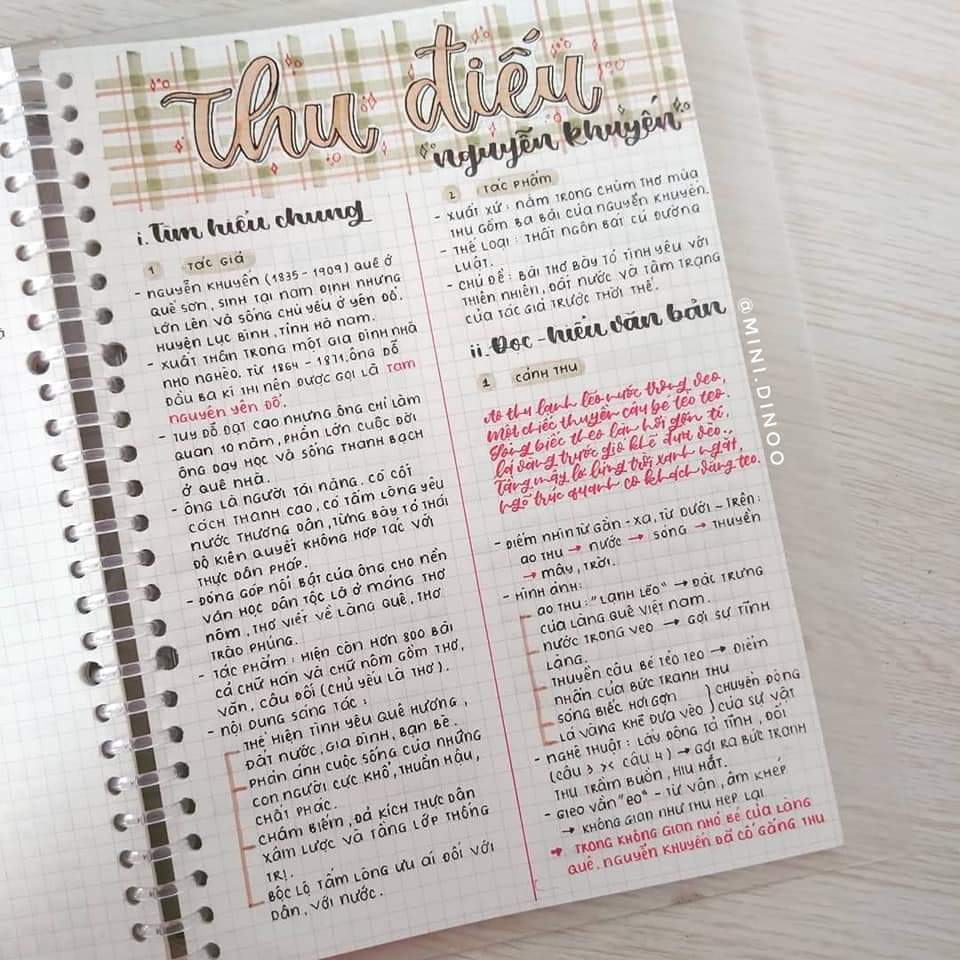 Thu điếu
nguyễn khuyến
i. Tìm hiểu chung
1 Tác giả
- nguyễn khuyến (1835 - 1909) quê ở
quế sơn, sinh tại nam định nhưng
lớn lên và sống chủ yếu ở yên đổ.
huyện lục bình, tỉnh hà nam.
- xuất thân trong một gia đình nhà
nho nghèo. từ 1864 - 1871, ông đỗ
đầu ba kì thi nên được gọi là tam
nguyên yên đổ.
- tuy đỗ đạt cao nhưng ông chỉ làm
quan 10 năm, phần lớn cuộc đời
ông dạy học và sống thanh bạch
ở quê nhà.
- ông là người tài năng, có cốt
cách thanh cao, có tấm lòng yêu
nước thương dân, từng bày tỏ thái
độ kiên quyết không hợp tác với
thực dân pháp.
- đóng góp nổi bật của ông cho nền
văn học dân tộc là ở mảng thơ
nôm, thơ viết về làng quê, thơ
trào phúng.
- tác phẩm: hiện còn hơn 800 bài
cả chữ hán và chữ nôm gồm thơ,
văn, câu đối (chủ yếu là thơ).
- nội dung sáng tác:
thể hiện tình yêu quê hương,
đất nước, gia đình, bạn bè.
phản ánh cuộc sống của những
con người cực khổ, thuần hậu,
chất phác.
châm biếm, đả kích thực dân
xâm lược và tầng lớp thống
trị.
bộc lộ tấm lòng ưu ái đối với
dân, với nước.
2 Tác phẩm
- xuất xứ: nằm trong chùm thơ mùa
thu gồm ba bài của nguyễn khuyến.
- thể loại: thất ngôn bát cú đường
luật.
- chủ đề: bài thơ bày tỏ tình yêu với
thiên nhiên, đất nước và tâm trạng
của tác giả trước thời thế.
ii. Đọc - hiểu văn bản
1 cảnh thu
Ao thu lạnh lẽo nước trong veo,
Một chiếc thuyền câu bé tẻo teo.
Sóng biếc theo làn hơi gợn tí,
Lá vàng trước gió khẽ đưa vèo.
Tầng mây lơ lửng trời xanh ngắt,
ngõ trúc quanh co khách vắng teo.
- điểm nhìn từ gần - xa, từ dưới - trên:
ao thu → nước → sóng → thuyền
→ mây, trời.
- hình ảnh:
ao thu: "lạnh lẽo" → đặc trưng
của làng quê việt nam.
nước trong veo → gợi sự tĩnh
lặng.
thuyền câu bé tẻo teo → điểm
nhấn của bức tranh thu
sóng biếc hơi gợn } chuyển động
lá vàng khẽ đưa vèo } của sự vật
- nghệ thuật: lấy động tả tĩnh, đối
(câu 3 >< câu 4) → gợi ra bức tranh
thu trầm buồn, hiu hắt.
- gieo vần "eo" - từ vận, âm khép
→ không gian như thu hẹp lại
→ trong không gian nhỏ bé của làng
quê, nguyễn khuyến đã cố gắng thu
@MINI.DINOO